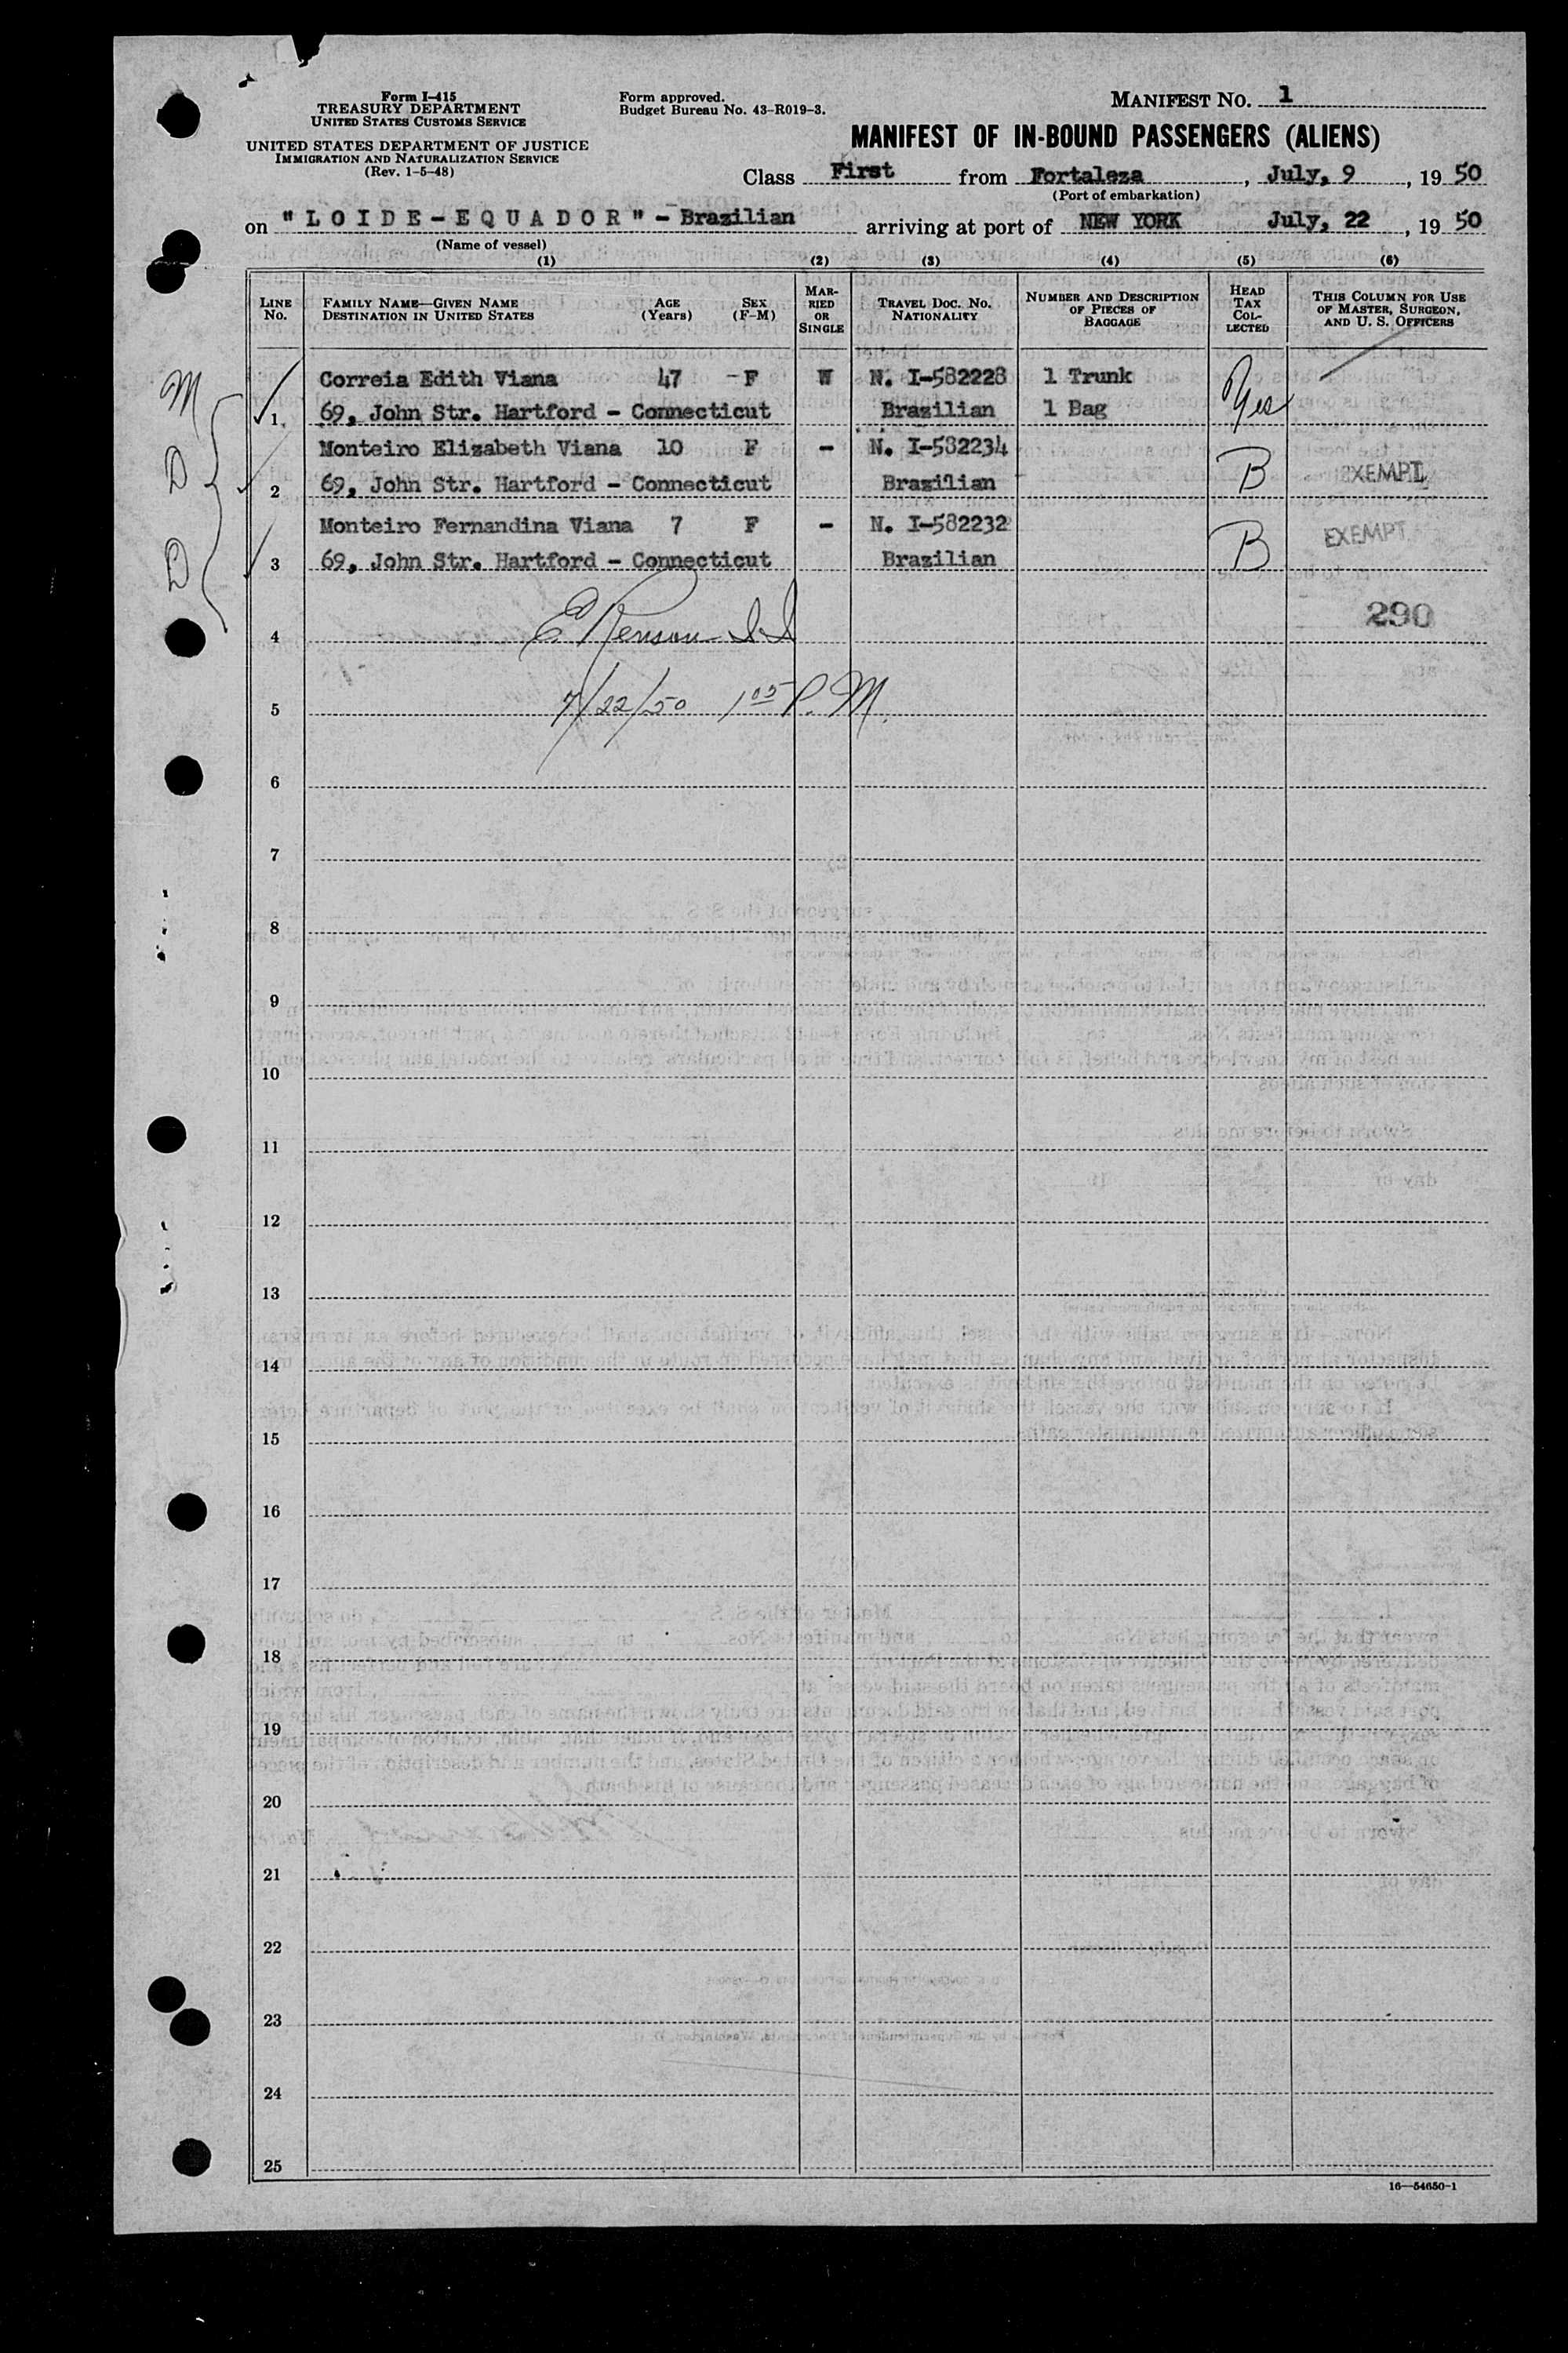 Form I-415
TREASURY DEPARTMENT
UNITED STATES CUSTOMS SERVICE
UNITED STATES DEPARTMENT OF JUSTICE
IMMIGRATION AND NATURALIZATION SERVICE
(Rev. 1-5-48)
Form approved.
Budget Bureau No. 43-R019-3.
MANIFEST NO. 1
MANIFEST OF IN-BOUND PASSENGERS (ALIENS)
Class First from Fortaleza, July, 9, 19 50
(Port of embarkation)
on "LOIDE-EQUADOR" - Brazilian arriving at port of NEW YORK July, 22, 19 50
(Name of vessel)
(1) (2) (3) (4) (5) (6)
LINE No. FAMILY NAME—GIVEN NAME DESTINATION IN UNITED STATES AGE (Years) SEX (F-M) MAR-RIED OR SINGLE TRAVEL DOC. NO. NATIONALITY NUMBER AND DESCRIPTION OF PIECES OF BAGGAGE HEAD TAX COL-LECTED THIS COLUMN FOR USE OF MASTER, SURGEON, AND U. S. OFFICERS
M Correia Edith Viana 47 -F W N. I-582228 1 Trunk
1 69, John Str. Hartford - Connecticut Brazilian 1 Bag Yes
Monteiro Elizabeth Viana 10 F - N. I-582234
D 2 69, John Str. Hartford - Connecticut Brazilian B EXEMPT
Monteiro Fernandina Viana 7 F - N. I-582232
D 3 69, John Str. Hartford - Connecticut Brazilian B EXEMPT
4 290
5 7/22/50 1 05 P.M.
6
7
8
9
10
11
12
13
14
15
16
17
18
19
20
21
22
23
24
25
16—54650-1